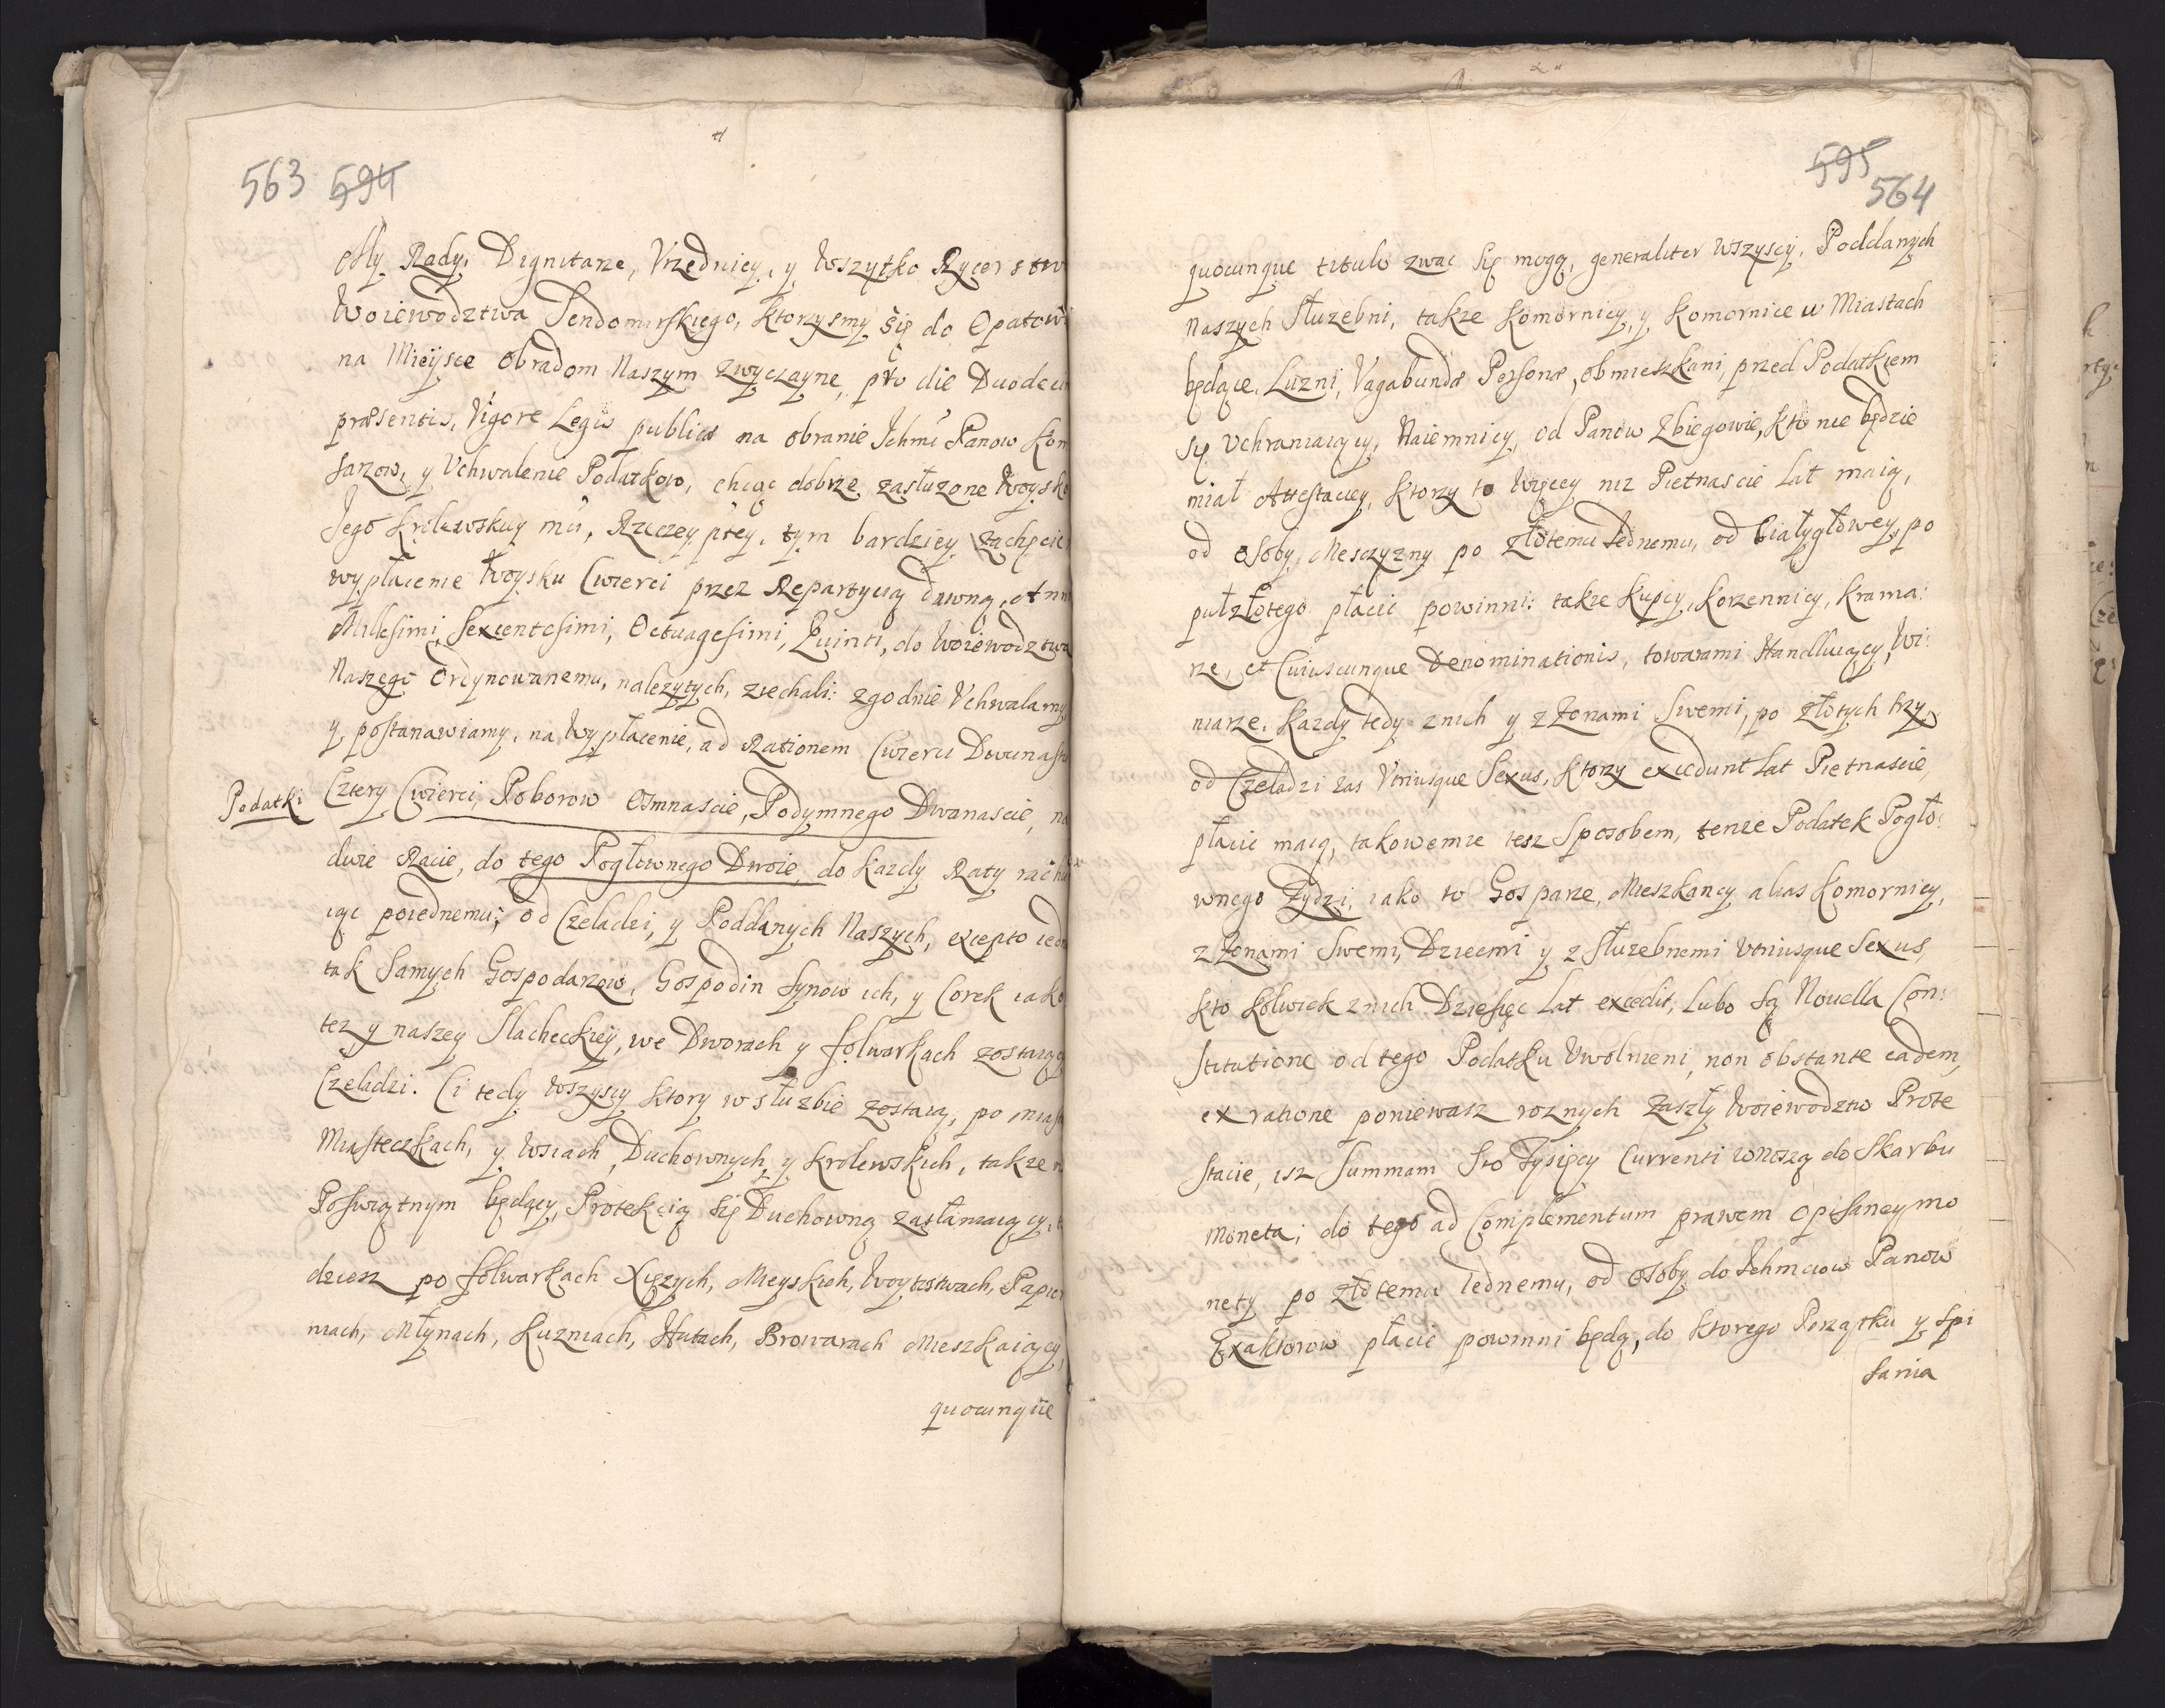 563 594
My Rady, Dignitarze, Vrzędnicy, y Wszytko Rycerstw
Woiewodztwa Sendomirskiego, Ktorzysmy się do Opatow
na Mieÿsce Obradom Naszym zwyczayne, pro die Duodeci
præsentis, Vigore Legis publicæ na obranie Ichmċ Panow Kom
sarzow, y Vchwalenie Podatkow, chcąc dobrze zasłuzone Woysko
Jego Krolewskiey mċi, Rzeczey ptey, tym bardziey zachęcić
wypłacenie Woysku Cwierci przez Repartycią dawną, Ann
Millesimi, Sexcentesimi, Octuagesimi, Quinti, do Woiewodztwa
Naszego Ordynowanemu, nalezytych, ziechali: zgodnie Vchwalamy,
y postanawiamy, na Wypłacenie, ad Rationem Cwierci Dwunastu
Podatki
Cztery Cwierci, Poborow Osmnascie, Podymnego Dwanascie, na
dwie Racie, do tego Pogłownego Dwoie, do kazdy Raty rachu
iąc poiednemu; od Czeladzi, y Poddanych Naszych, excepto iedn
tak Samych Gospodarzow, Gospodin Synow ich, y Corek iako
tez y naszey Slacheckiey, we Dworach y folwarkach zostaiący
Czeladzi. Ci tedy Wszyscy ktorzy w słuzbie zostaią, po miast
Miasteczkach, y Wsiach Duchownych, y Krolewskich, takze n
Poswiątnym będący, Protekcią się Duchowną zasłaniaiący, t
dziesz po folwarkach Xięzych, Mieyskich, Woytostwach, Papier
niach, Młynach, Kuzniach, Hutach, Browarach Mieszkaiący,
quocunque
595
564
quocunque titulo zwac się mogą, generaliter wszyscy, Poddanych
Naszych Słuzebni, takze Komornicy, y Komornice w Miastach
będące, Luzni, Vagabundæ Personæ, obmieszkani, przed Podatkiem
się Vchraniaiący, Naiemnicy, od Panow Zbiegowie, kto nie będzie
miał Attestaciey, Ktorzy to więcey niz Pietnascie Lat maią,
od osoby Mesczyzny po złotemu Iednemu, od Białygłowey, po
pułzłotego płacić powinni: takze Kupcy, Korzennicy, Krama:
rze, et Cuiuscunque Denominationis, towarami Handluiący, Wi:
niarze. Kazdy tedy znich y z Zonami Swemi, po złotych trzy,
od Czeladzi zas Vtriusque Sexus, ktorzy excedunt Lat Pietnascie,
płacic maią, takowemze tesz Sposobem, tenze Podatek Pogło:
wnego Zydzi, iako to Gosparze, Mieszkancy alias Komornicy,
z Zonami Swemi, Dziecmi y z Słuzebnemi Vtriusque Sexus,
kto kolwiek znich Dziesięc Lat excedit, Lubo są Novella Con:
stitutione od tego Podatku Vwolnieni, non obstante eadem,
ex ratione poniewasz roznych zaszły Woiewodztw Prote
stacie, isz Summam Sto Tysięcy Currenti wnoszą do Skarbu
Moneta; do tego ad Complementum prawem opisaney mo
nety po złotemu Iednemu, od osoby do Ichmciow Panow
Exaktorow płacic powinni będą, do ktorego Porządku y Spi
sania